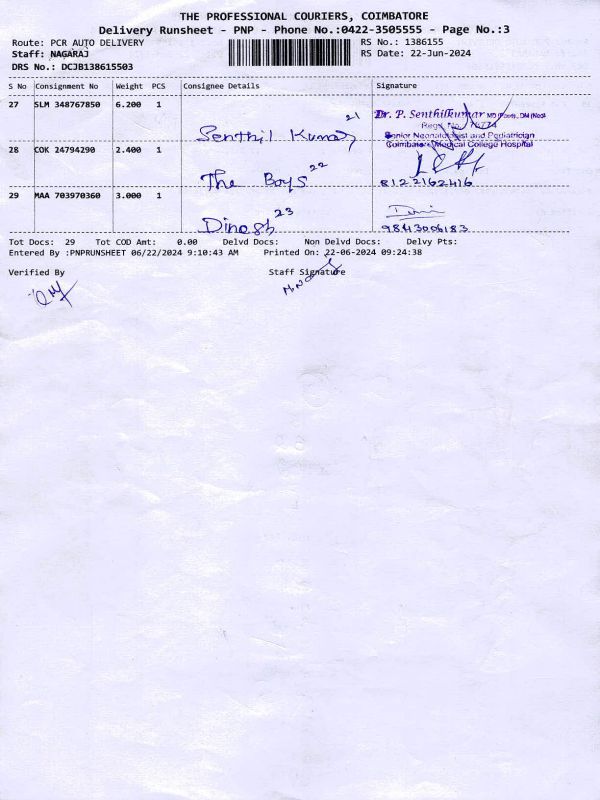 THE PROFESSIONAL COURIERS, COIMBATORE
Delivery Runsheet - PNP - Phone No.:0422-3505555 - Page No.:3
Route: PCR AUTO DELIVERY RS No.: 1386155
Staff: NAGARAJ RS Date: 22-Jun-2024
DRS No.: DCJB138615503
S No Consignment No Weight PCS Consignee Details Signature
27 SLM 348767850 6.200 1
21
Senthil Kumar
Dr. P. Senthilkumar MD (Paed), DM (Neo)
Regd. No. 76774
Senior Neonatologist and Pediatrician
Coimbatore Medical College Hospital
28 COK 24794290 2.400 1
The Boys 22
8122162416
29 MAA 703970360 3.000 1
Dinesh 23
9843006183
Tot Docs: 29 Tot COD Amt: 0.00 Delvd Docs: Non Delvd Docs: Delvy Pts:
Entered By :PNPRUNSHEET 06/22/2024 9:10:43 AM Printed On: 22-06-2024 09:24:38
Verified By Staff Signature